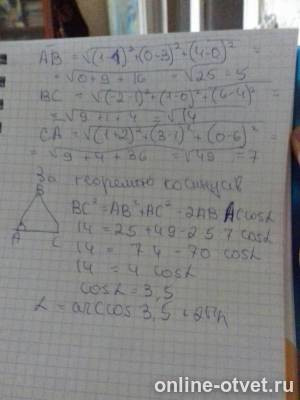 AB = √(1-1)²+(0-3)²+(4-0)² =
= √0+9+16 = √25 = 5
BC = √(-2-1)²+(1-0)²+(6-4)² =
= √9+1+4 = √14
CA = √(1+2)²+(3-1)²+(0-6)² =
= √9+4+36 = √49 = 7
За теоремою косинусів
B
A
C
BC² = AB²+AC²-2AB AC cosα
14 = 25+49-2·5·7 cosα
14 = 74 - 70 cosα
14 = 4 cosα
cosα = 3,5
α = arccos 3,5 + 2πn
online-otvet.ru